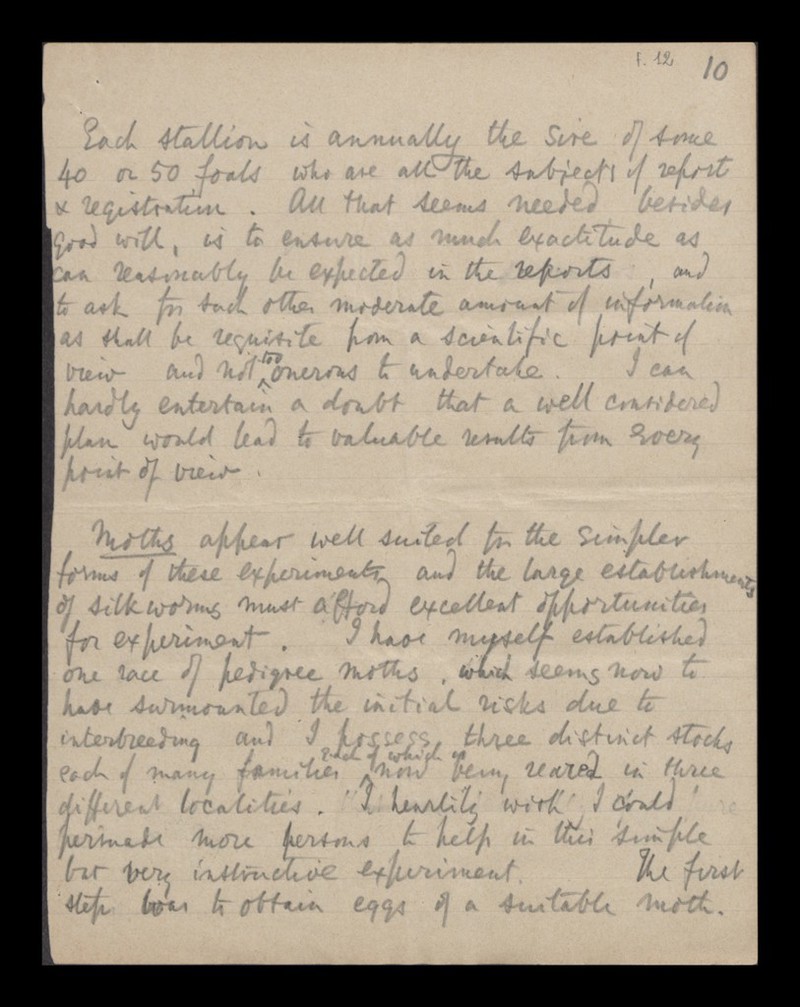 f. 12 10
Each stallion is annually the Sire of some
40 or 50 foals who are all the subjects of report
& registration . All that seems needed, besides
good will, is to ensure as much exactitude as
can reasonably be expected in the reports , and
to ask for such other moderate amount of information
as shall be requisite from a scientific point of
view and not too onerous to undertake . I can
hardly entertain a doubt that a well considered
plan would lead to valuable results from every
point of view .
Moths appear well suited for the simpler
forms of these experiments, and the large establishments
of silkworms must afford excellent opportunities
for experiment . I have myself established
one race of pedigree moths , which seems now to
have surmounted the initial risks due to
interbreeding and I possess three distinct stocks
each of many families each of which is now being reared in three
different localities . I heartily wish I could
persuade more persons to help in this simple
but very instructive experiment. The first
step was to obtain eggs of a suitable moth.